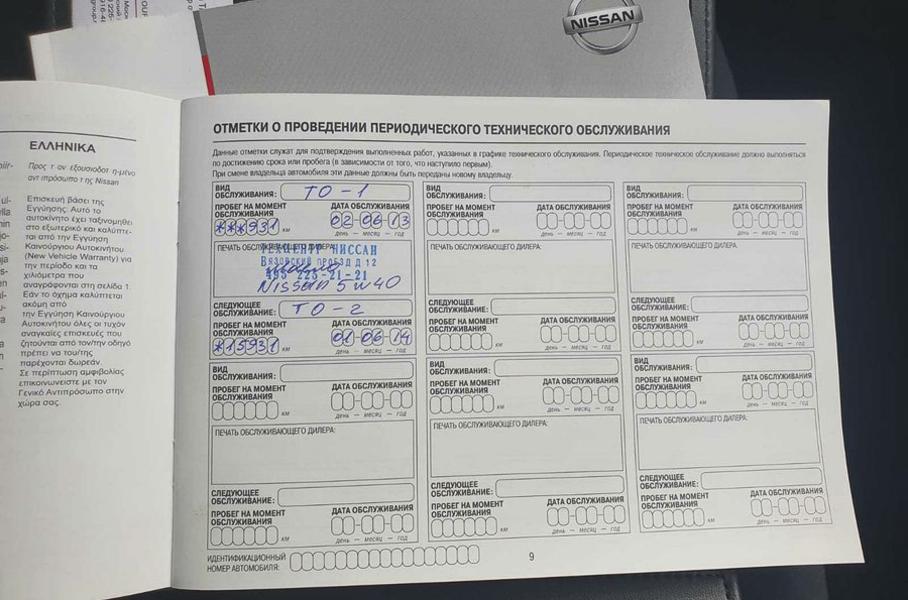 NISSAN
ΕΛΛΗΝΙΚΑ
Επισκευή βάσει της
Εγγύησης: Αυτό το
αυτοκίνητο έχει ταξινομηθεί
στο εξωτερικό και καλύπτε-
ται από την Εγγύηση
Καινούργιου Αυτοκινήτου
(New Vehicle Warranty) για
την περίοδο και τα
χιλιόμετρα που
αναγράφονται στη σελίδα 1.
Εάν το όχημα καλύπτεται
ακόμη από
την Εγγύηση Καινούργιου
Αυτοκινήτου όλες οι τυχόν
αναγκαίες επισκευές που
ζητούνται από τον/την οδηγό
πρέπει να του/της
παρέχονται δωρεάν.
Σε περίπτωση αμφιβολίας
επικοινωνείστε με τον
Γενικό Αντιπρόσωπο στην
χώρα σας.
ОТМЕТКИ О ПРОВЕДЕНИИ ПЕРИОДИЧЕСКОГО ТЕХНИЧЕСКОГО ОБСЛУЖИВАНИЯ
Данные отметки служат для подтверждения выполненных работ, указанных в графике технического обслуживания. Периодическое техническое обслуживание должно выполняться
по достижению срока или пробега (в зависимости от того, что наступило первым).
При смене владельца автомобиля эти данные должны быть переданы новому владельцу.
ВИД
ОБСЛУЖИВАНИЯ: ТО-1
ПРОБЕГ НА МОМЕНТ
ОБСЛУЖИВАНИЯ
ДАТА ОБСЛУЖИВАНИЯ
***931 км
02-06-13
день – месяц – год
ПЕЧАТЬ ОБСЛУЖИВАЮЩЕГО ДИЛЕРА:
ТЕХЦЕНТР НИССАН
Вязовский проезд д 12
495 225-21-21
Nissan 5w40
СЛЕДУЮЩЕЕ
ОБСЛУЖИВАНИЕ: ТО-2
ПРОБЕГ НА МОМЕНТ
ОБСЛУЖИВАНИЯ
ДАТА ОБСЛУЖИВАНИЯ
*15931 км
01-06-14
день – месяц – год
ВИД
ОБСЛУЖИВАНИЯ:
ПРОБЕГ НА МОМЕНТ
ОБСЛУЖИВАНИЯ
ДАТА ОБСЛУЖИВАНИЯ
км
день – месяц – год
ПЕЧАТЬ ОБСЛУЖИВАЮЩЕГО ДИЛЕРА:
СЛЕДУЮЩЕЕ
ОБСЛУЖИВАНИЕ:
ПРОБЕГ НА МОМЕНТ
ОБСЛУЖИВАНИЯ
ДАТА ОБСЛУЖИВАНИЯ
км
день – месяц – год
ВИД
ОБСЛУЖИВАНИЯ:
ПРОБЕГ НА МОМЕНТ
ОБСЛУЖИВАНИЯ
ДАТА ОБСЛУЖИВАНИЯ
км
день – месяц – год
ПЕЧАТЬ ОБСЛУЖИВАЮЩЕГО ДИЛЕРА:
СЛЕДУЮЩЕЕ
ОБСЛУЖИВАНИЕ:
ПРОБЕГ НА МОМЕНТ
ОБСЛУЖИВАНИЯ
ДАТА ОБСЛУЖИВАНИЯ
км
день – месяц – год
ВИД
ОБСЛУЖИВАНИЯ:
ПРОБЕГ НА МОМЕНТ
ОБСЛУЖИВАНИЯ
ДАТА ОБСЛУЖИВАНИЯ
км
день – месяц – год
ПЕЧАТЬ ОБСЛУЖИВАЮЩЕГО ДИЛЕРА:
СЛЕДУЮЩЕЕ
ОБСЛУЖИВАНИЕ:
ПРОБЕГ НА МОМЕНТ
ОБСЛУЖИВАНИЯ
ДАТА ОБСЛУЖИВАНИЯ
км
день – месяц – год
ВИД
ОБСЛУЖИВАНИЯ:
ПРОБЕГ НА МОМЕНТ
ОБСЛУЖИВАНИЯ
ДАТА ОБСЛУЖИВАНИЯ
км
день – месяц – год
ПЕЧАТЬ ОБСЛУЖИВАЮЩЕГО ДИЛЕРА:
СЛЕДУЮЩЕЕ
ОБСЛУЖИВАНИЕ:
ПРОБЕГ НА МОМЕНТ
ОБСЛУЖИВАНИЯ
ДАТА ОБСЛУЖИВАНИЯ
км
день – месяц – год
ВИД
ОБСЛУЖИВАНИЯ:
ПРОБЕГ НА МОМЕНТ
ОБСЛУЖИВАНИЯ
ДАТА ОБСЛУЖИВАНИЯ
км
день – месяц – год
ПЕЧАТЬ ОБСЛУЖИВАЮЩЕГО ДИЛЕРА:
СЛЕДУЮЩЕЕ
ОБСЛУЖИВАНИЕ:
ПРОБЕГ НА МОМЕНТ
ОБСЛУЖИВАНИЯ
ДАТА ОБСЛУЖИВАНИЯ
км
день – месяц – год
ИДЕНТИФИКАЦИОННЫЙ
НОМЕР АВТОМОБИЛЯ:
9